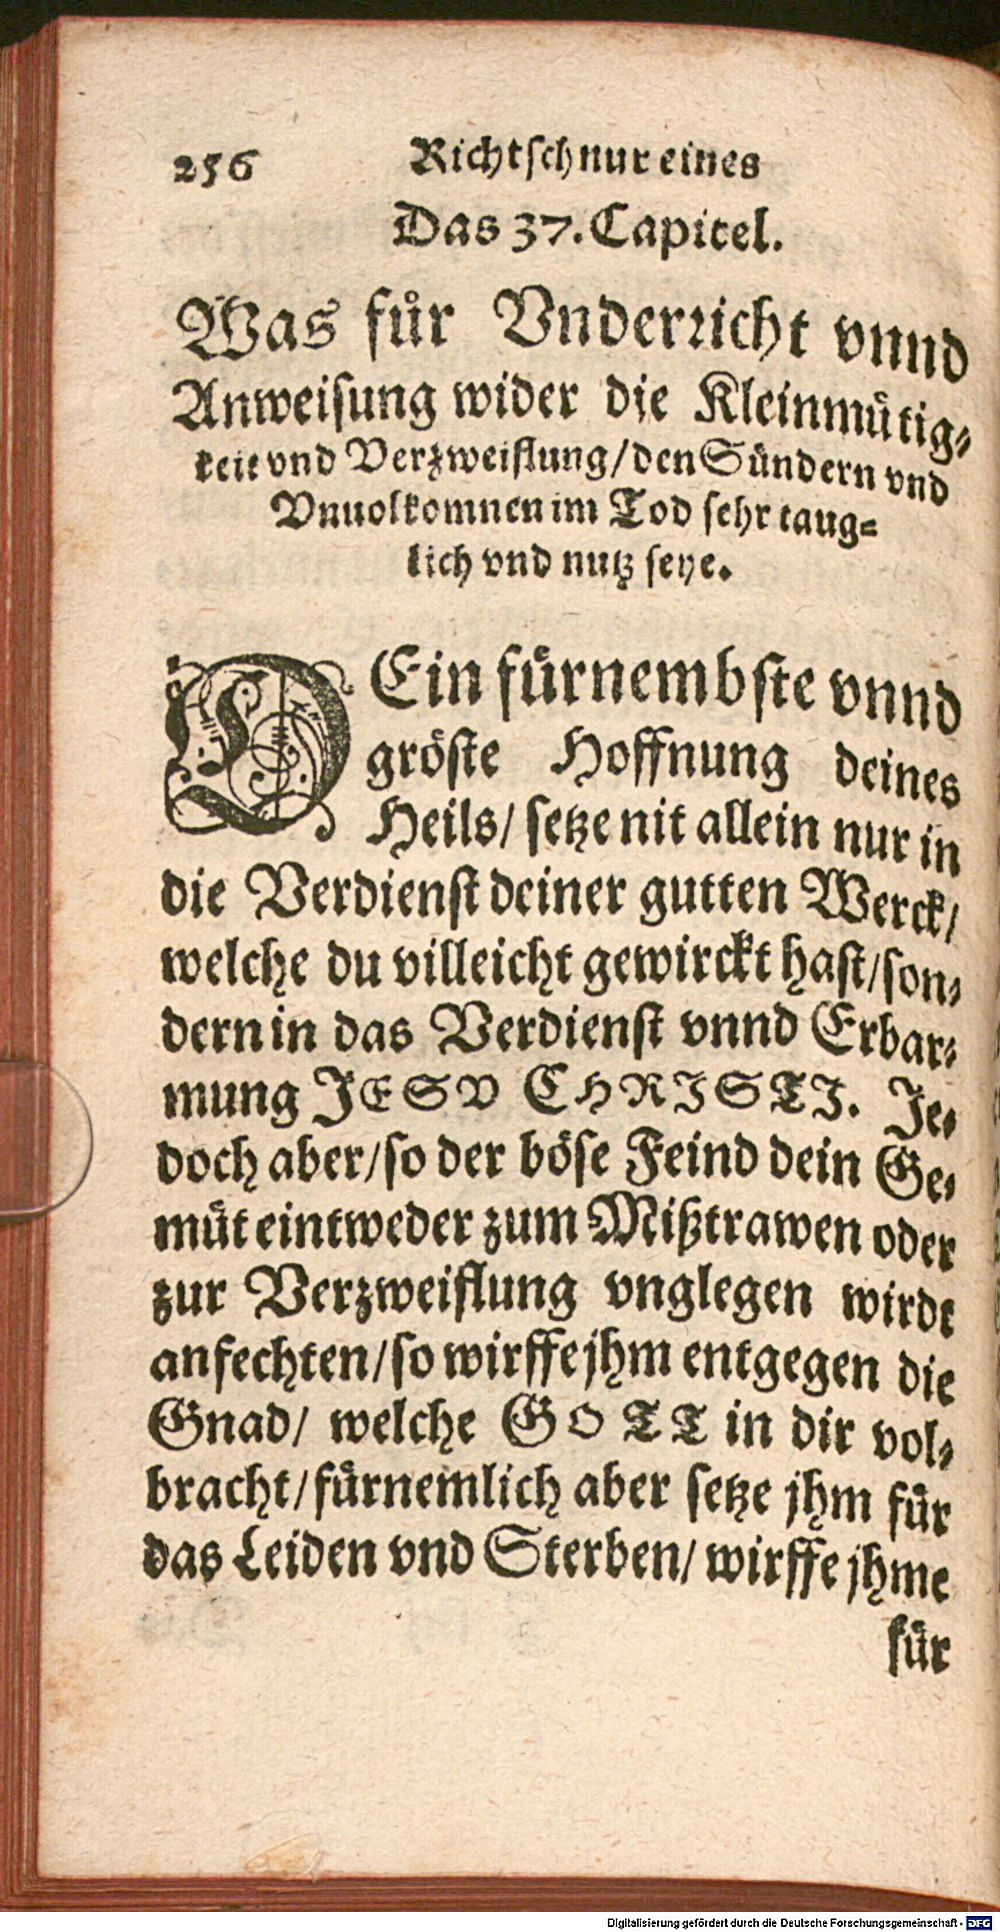 256 Richtschnur eines
Das 37. Capitel.
Was für Vnderricht vnnd
Anweisung wider die Kleinmütig-
keit vnd Verzweiflung/den Sündern vnd
Vnuolkomnen im Tod sehr taug-
lich vnd nutz seye.
DEin fürnembste vnnd
gröste Hoffnung deines
Heils/ setze nit allein nur in
die Verdienst deiner gutten Werck/
welche du villeicht gewirckt hast/son-
dern in das Verdienst vnnd Erbar-
mung JESV CHRISTJ. Je-
doch aber/so der böse Feind dein Ge-
müt eintweder zum Mißtrawen oder
zur Verzweiflung vnglegen wirdt
anfechten/so wirffe jhm entgegen die
Gnad/ welche GOTT in dir vol-
bracht/fürnemlich aber setze jhm für
das Leiden vnd Sterben/ wirffe jhme
für
Digitalisierung gefördert durch die Deutsche Forschungsgemeinschaft - DFG